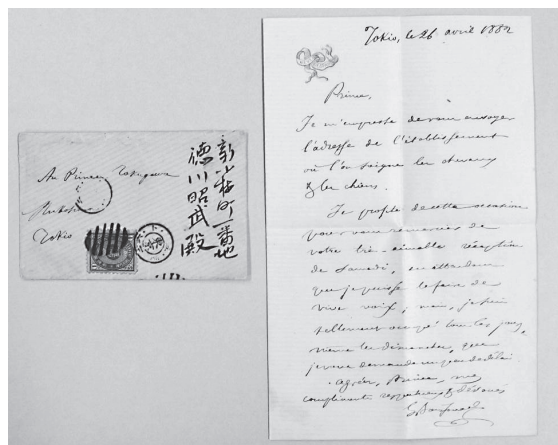 Au Prince Tokugawa
Tokio
新小梅町一番地
徳川昭武殿
Tokio, le 26 avril 1882
Prince,
Je m'empresse de vous envoyer
l'adresse de l'établissement
où l'on soigne les chevaux
& les chiens.
Je profite de cette occasion
pour vous remercier de
votre très-aimable réception
de Samedi, en attendant
que je puisse le faire de
vive voix, mais, je suis
tellement occupé tous les jours,
même les dimanches, que
je vous demande un peu de délai
Agréez, Prince, mes
compliments respectueux & dévoués